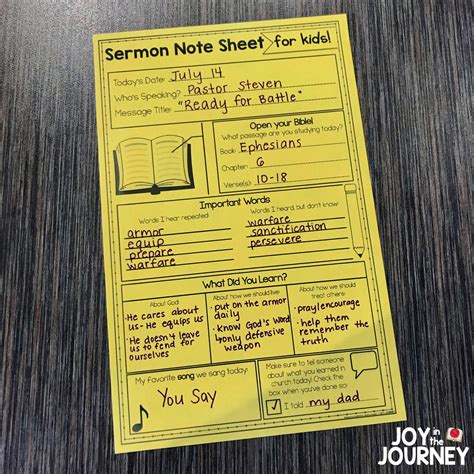 Sermon Note Sheet for kids!
Today's Date: July 14
Who's Speaking? Pastor Steven
Message Title: "Ready for Battle"
Open your Bible!
What passage are you studying today?
Book: Ephesians
Chapter: 6
Verse(s): 10-18
Important Words
Words I hear repeated
armor
equip
prepare
warfare
Words I heard, but don't know
warfare
sanctification
persevere
What Did You Learn?
About God:
·He cares about
us- He equips us
·He doesn't leave
us to fend for
ourselves
About how we should live:
·put on the armor
daily
·Know God's Word
↳only defensive
weapon
About how we should treat
others:
·pray/encourage
·help them
remember the
truth
My Favorite song we sang today:
You Say
Make sure to tell someone
about what you learned in
church today! Check the
box when you've done so:
✓ I told my dad
JOY in the
JOURNEY